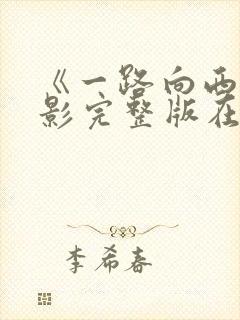 《一路向西
影完整版在
李希春